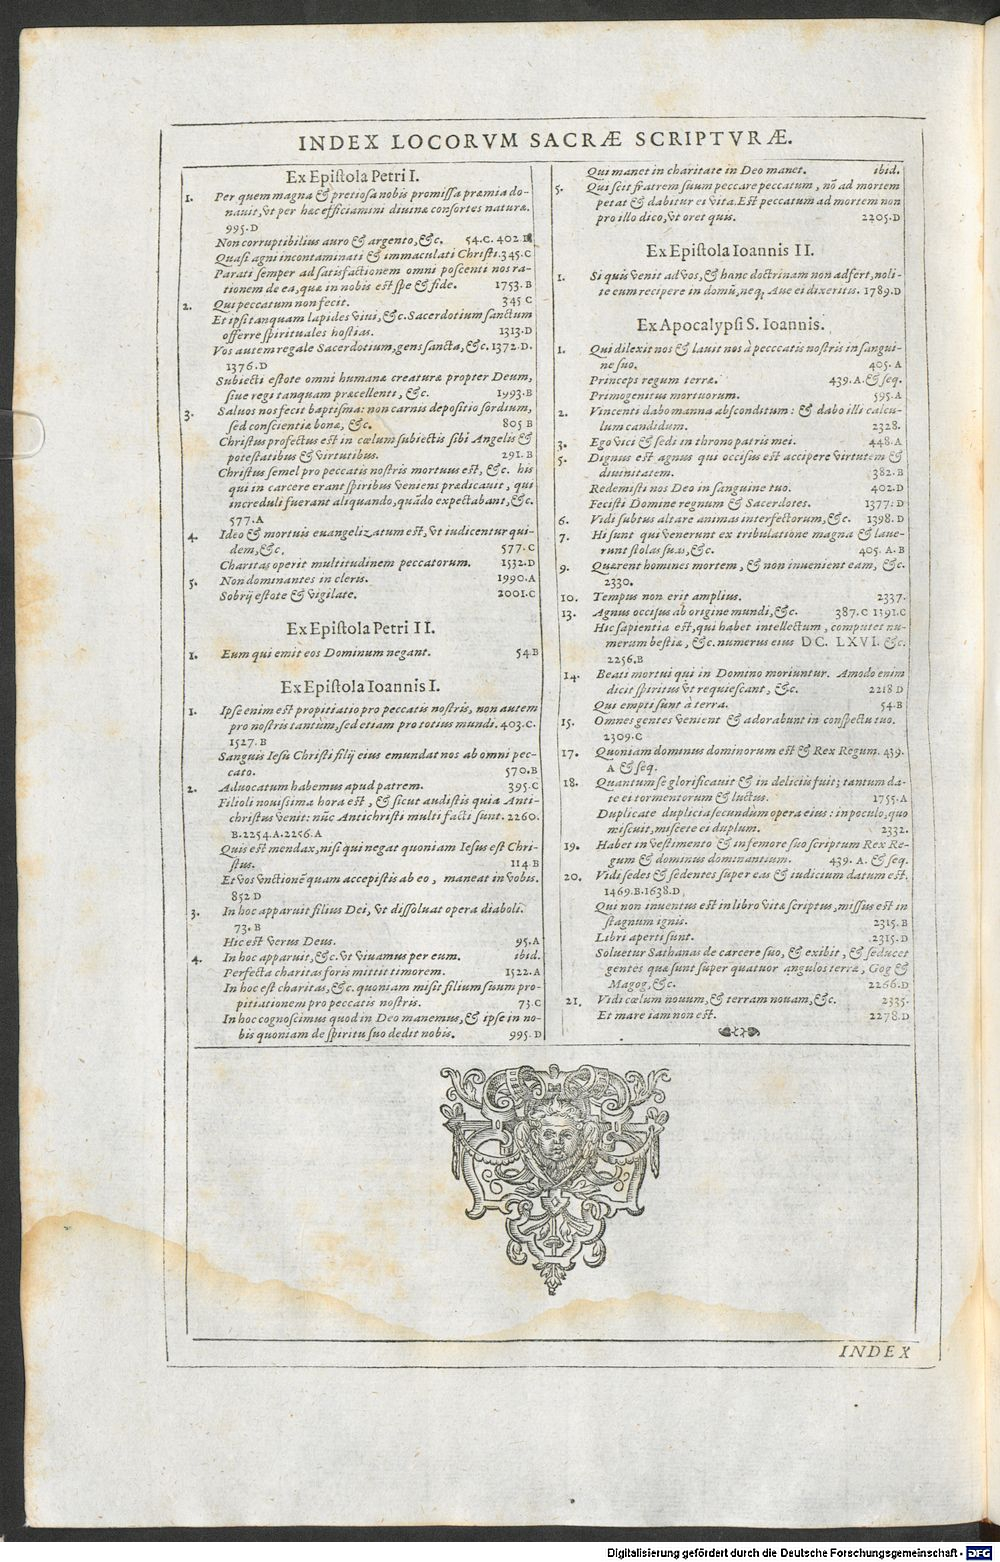 INDEX LOCORVM SACRÆ SCRIPTVRÆ.
Ex Epistola Petri I.
1. Per quem magna & pretiosa nobis promissa præmia do-
nauit, vt per hæc efficiamini diuinæ consortes naturæ.
995.D
Non corruptibilius auro & argento, &c. 54.C. 402
Quasi agni incontaminati & immaculati Christi. 345.C
Parati semper ad satisfactionem omni poscenti nos ra-
tionem de ea, quæ in nobis est spe & fide. 1753.B
2. Qui peccatum non fecit. 345 C
Et ipsi tanquam lapides viui, &c. Sacerdotium sanctum
offerre spirituales hostias. 1313.D
Vos autem regale Sacerdotium, gens sancta, &c. 1372.D.
1376.D
Subiecti estote omni humanæ creaturæ propter Deum,
siue regi tanquam præcellenti, &c. 1993.B
3. Saluos nos fecit baptisma: non carnis depositio sordium,
sed conscientiæ bonæ, &c. 805 B
Christus profectus est in cœlum subiectis sibi Angelis &
potestatibus & virtutibus. 291.B
Christus semel pro peccatis nostris mortuus est, &c. his
qui in carcere erant spiribus veniens prædicauit, qui
increduli fuerant aliquando, quādo expectabant, &c.
577.A
4. Ideo & mortuis euangelizatum est, vt iudicentur qui-
dem, &c. 577.C
Charitas operit multitudinem peccatorum. 1532.D
5. Non dominantes in cleris. 1990.A
Sobrij estote & vigilate. 2001.C
Ex Epistola Petri II.
1. Eum qui emit eos Dominum negant. 54 B
Ex Epistola Ioannis I.
1. Ipse enim est propitiatio pro peccatis nostris, non autem
pro nostris tantùm, sed etiam pro totius mundi. 403.C.
1527.B
Sanguis Iesu Christi filij eius emundat nos ab omni pec-
cato. 570.B
2. Aduocatum habemus apud patrem. 395 C
Filioli nouissima hora est, & sicut audistis quia Anti-
christus venit: nūc Antichristi multi facti sunt. 2260.
B. 2254.A. 2256.A
Quis est mendax, nisi qui negat quoniam Iesus est Chri-
stus. 114 B
Et vos vnctionē quam accepistis ab eo, maneat in vobis.
852 D
3. In hoc apparuit filius Dei, vt dissoluat opera diaboli.
73.B
Hic est verus Deus. 95.A
4. In hoc apparuit, &c. vt viuamus per eum. ibid.
Perfecta charitas foris mittit timorem. 1522.A
In hoc est charitas, &c. quoniam misit filium suum pro-
pitiationem pro peccatis nostris. 73.C
In hoc cognoscimus quod in Deo manemus, & ipse in no-
bis quoniam de spiritu suo dedit nobis. 995.D
Qui manet in charitate in Deo manet. ibid.
5. Qui scit fratrem suum peccare peccatum, nō ad mortem
petat & dabitur ei vita. Est peccatum ad mortem non
pro illo dico, vt oret quis. 2205.D
Ex Epistola Ioannis II.
1. Si quis venit ad vos, & hanc doctrinam non adfert, noli-
te eum recipere in domū, neq; Aue ei dixeritis. 1789.D
Ex Apocalypsi S. Ioannis.
1. Qui dilexit nos & lauit nos à pecccatis nostris in sangui-
ne suo. 405. A
Princeps regum terræ. 439. A. & seq.
Primogenitus mortuorum. 595.A
2. Vincenti dabo manna absconditum: & dabo illi calcu-
lum candidum. 2328.
3. Ego vici & sedi in throno patris mei. 448.A
5. Dignus est agnus qui occisus est accipere virtutem &
diuinitatem. 382.B
Redemisti nos Deo in sanguine tuo. 402.D
Fecisti Domine regnum & Sacerdotes. 1377.D
6. Vidi subtus altare animas interfectorum, &c. 1398.D
7. Hi sunt qui venerunt ex tribulatione magna & laue-
runt stolas suas, &c. 405. A.B
9. Quærent homines mortem, & non inuenient eam, &c.
2330.
10. Tempus non erit amplius. 2337.
13. Agnus occisus ab origine mundi, &c. 387.C 1391.C
Hic sapientia est, qui habet intellectum, computet nu-
merum bestiæ, &c. numerus eius DC. LXVI. &c.
2256.B
14. Beati mortui qui in Domino moriuntur. Amodo enim
dicit spiritus vt requiescant, &c. 2218 D
Qui empti sunt à terra. 54.B
15. Omnes gentes venient & adorabunt in conspectu tuo.
2309.C
17. Quoniam dominus dominorum est & Rex Regum. 439.
A & seq.
18. Quantum se glorificauit & in deliciis fuit; tantum da-
te ei tormentorum & luctus. 1755.A
Duplicate duplicia secundùm opera eius: in poculo, quo
miscuit, miscete ei duplum. 2332.
19. Habet in vestimento & in femore suo scriptum Rex Re-
gum & dominus dominantium. 439. A. & seq.
20. Vidi sedes & sedentes super eas & iudicium datum est.
1469.B. 1638.D
Qui non inuentus est in libro vitæ scriptus, missus est in
stagnum ignis. 2315.B
Libri aperti sunt. 2315.D
Soluetur Sathanas de carcere suo, & exibit, & seducet
gentes quæ sunt super quatuor angulos terræ, Gog &
Magog, &c. 2266.D
21. Vidi cœlum nouum, & terram nouam, &c. 2335.
Et mare iam non est. 2278.D
INDEX
Digitalisierung gefördert durch die Deutsche Forschungsgemeinschaft - DFG